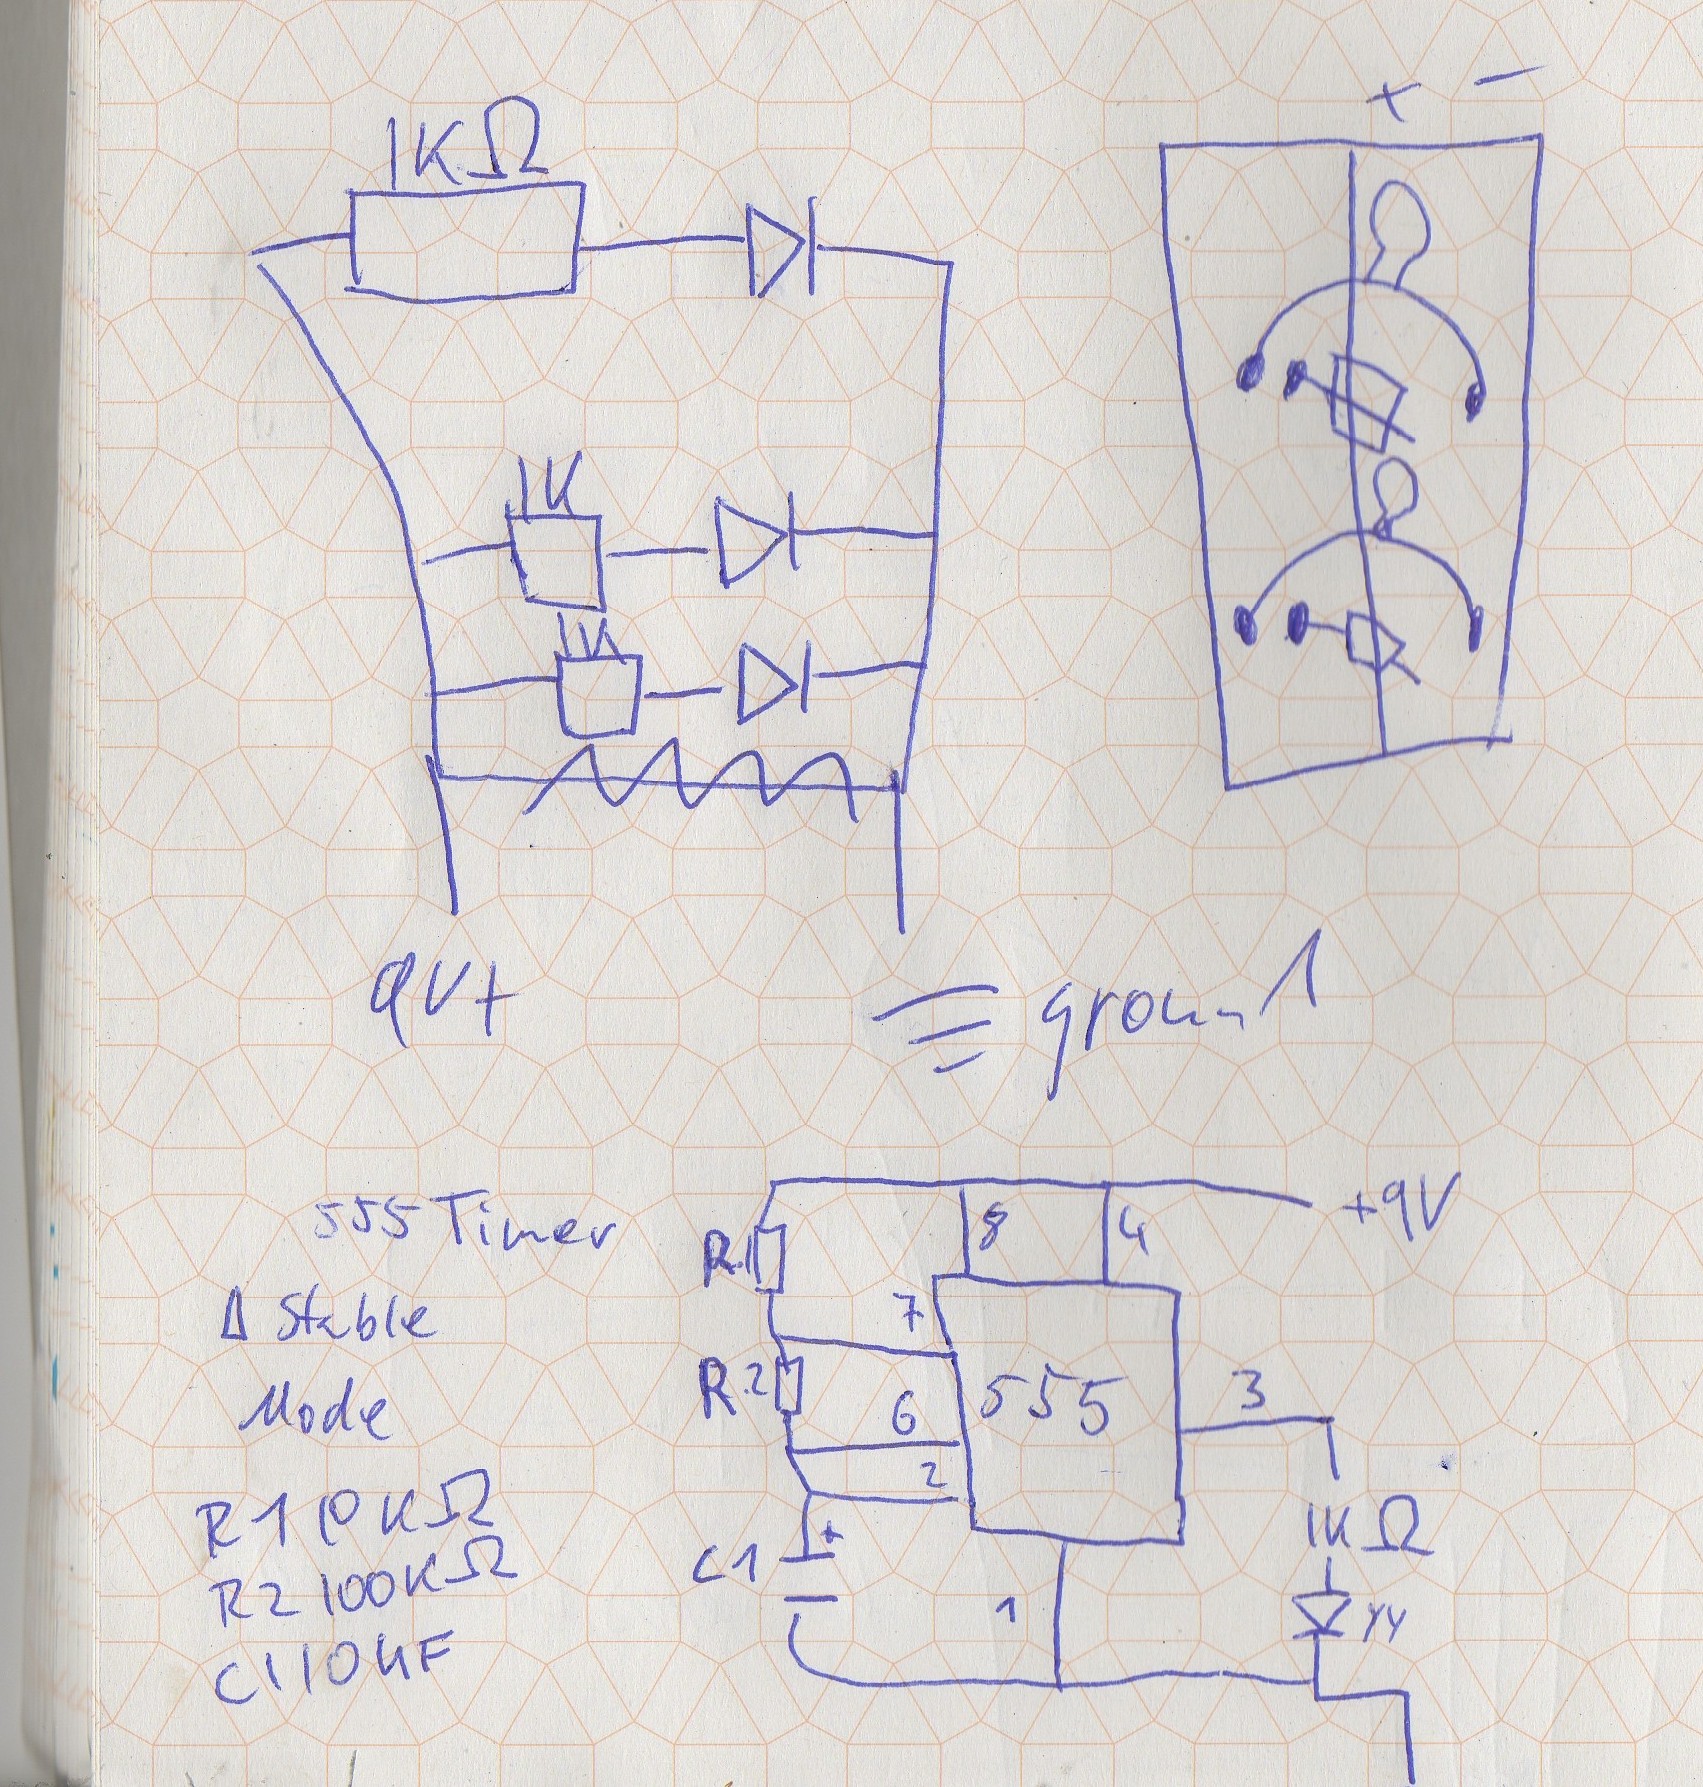 1KΩ
+ -
1K
1K
9V+
ground
555 Timer
+9V
8
4
R1
Astable
7
Mode
R2
6
555
3
2
R1 10KΩ
1KΩ
R2 100KΩ
C1
+
1
C1 10uF